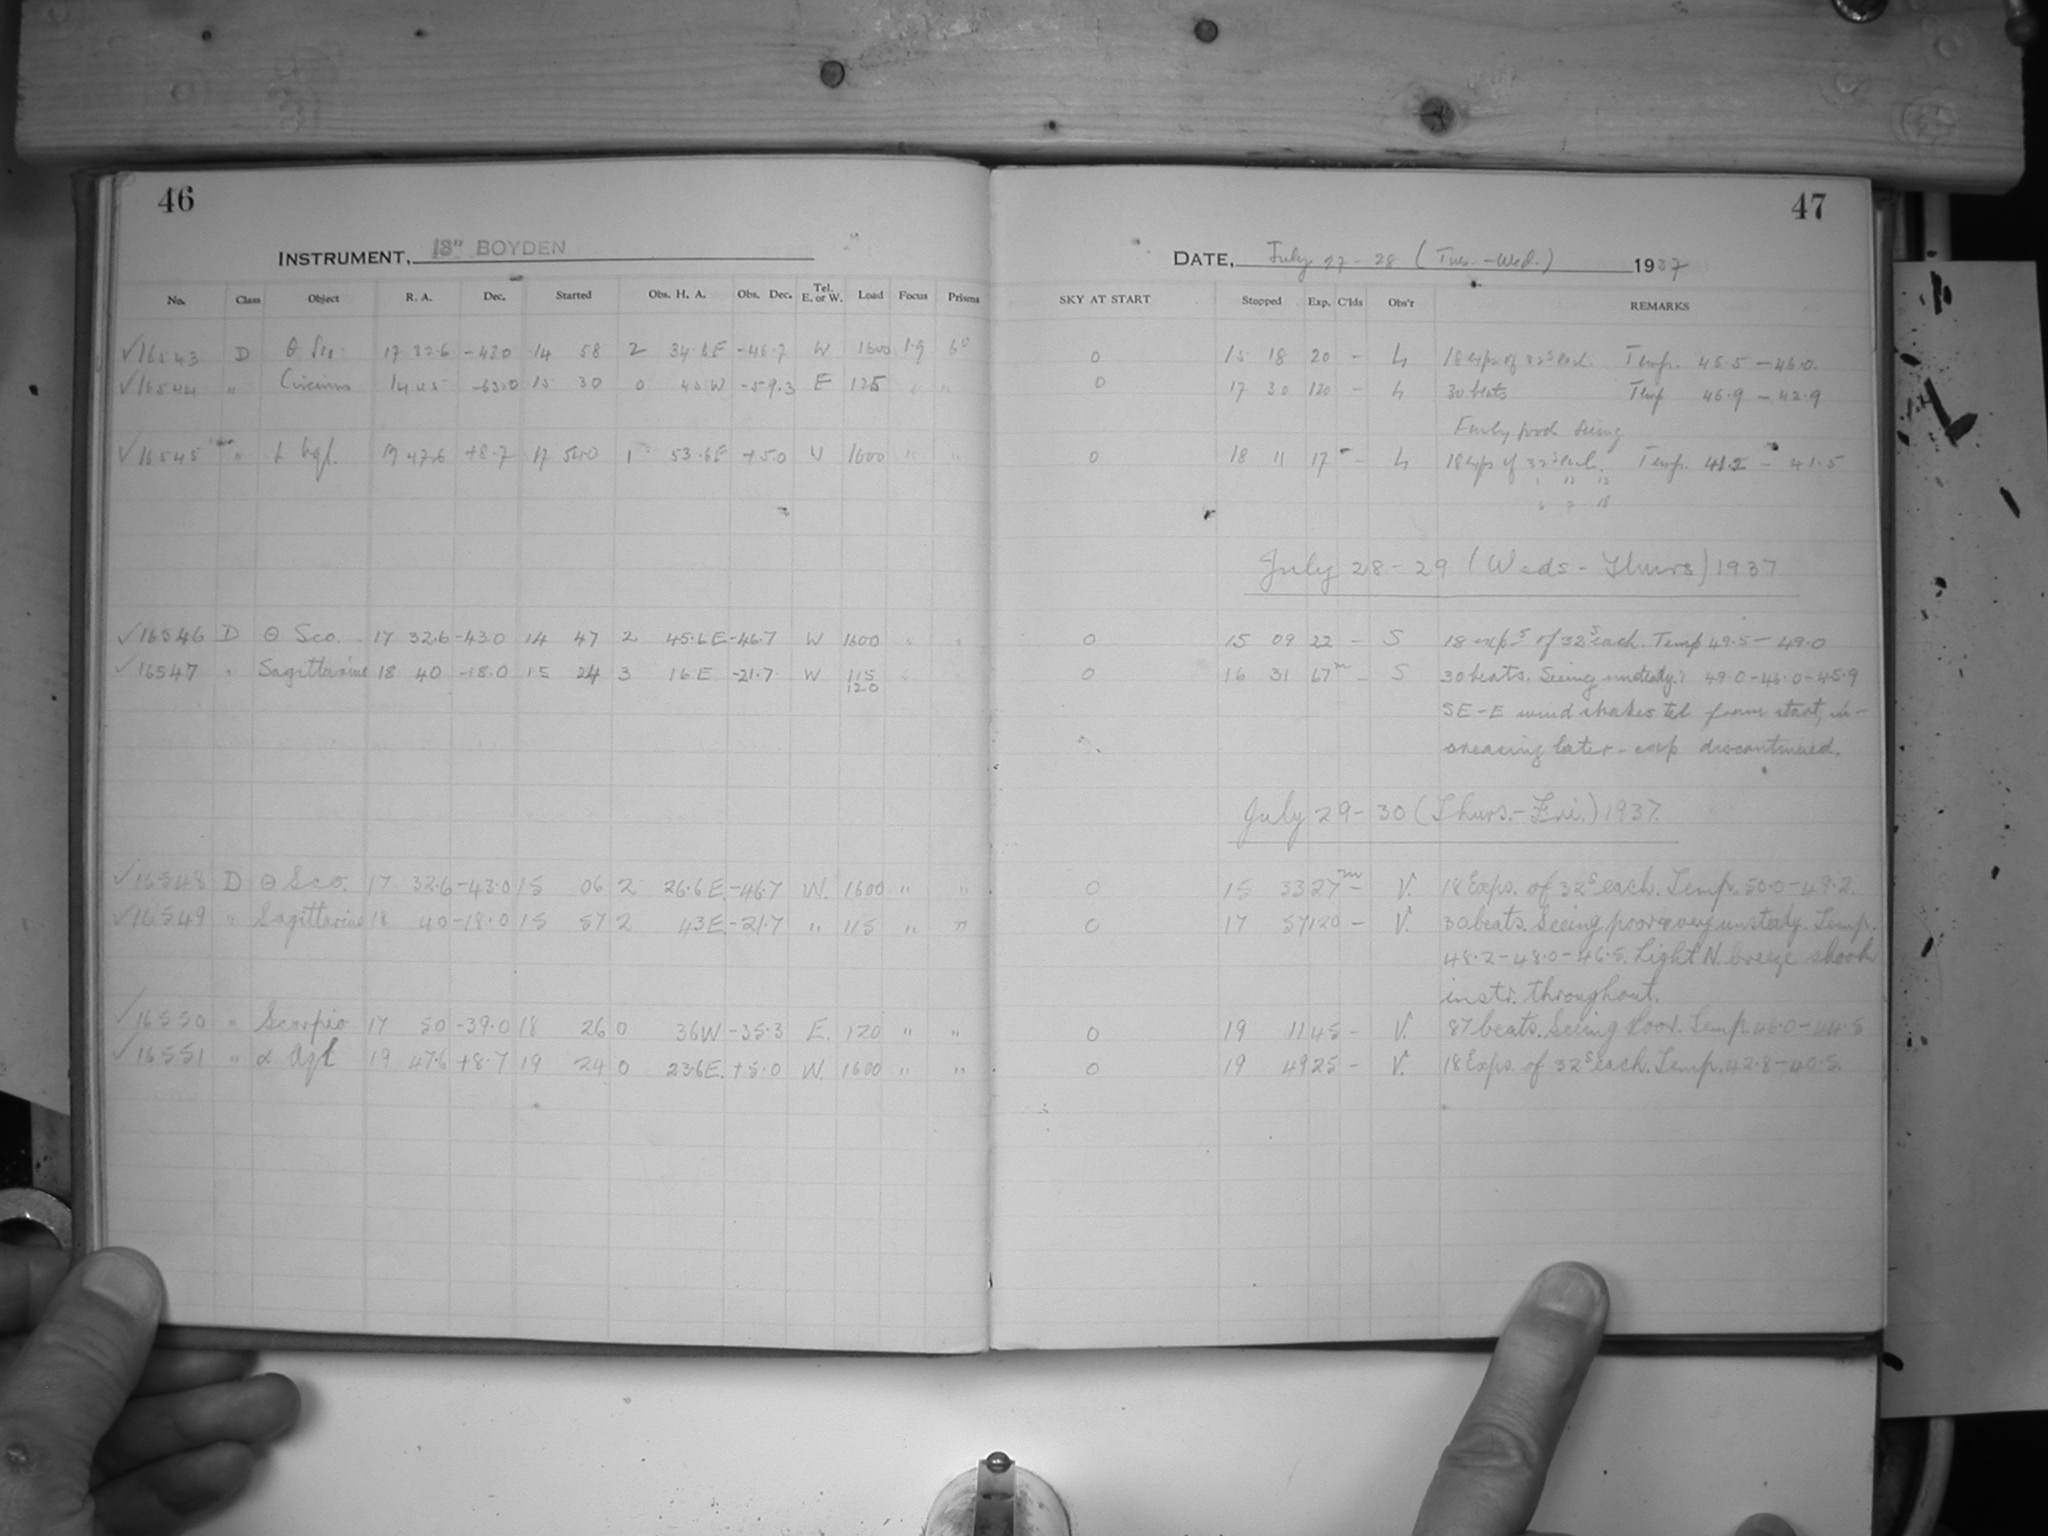 46
INSTRUMENT, 13" BOYDEN
No. Class Object R. A. Dec. Started Obs. H. A. Obs. Dec. Tel. E. or W. Load Focus Prisms
✓16543 D θ Sco. 17 32.6 -43.0 14 58 2 34.6E -46.7 W 1600 1.9 6°
✓16544 " Circinus 14 45 -63.0 15 30 0 45W -59.3 E 125 " "
✓16545 " 47.6 +8.7 17 1 53.6E +5.0 W 1600 " "
✓16546 D θ Sco. 17 32.6 -43.0 14 47 2 45.6E -46.7 W 1600 " "
✓16547 " Sagittarius 18 40 -18.0 15 24 3 16E -21.7 W 115
120
✓16548 D θ Sco. 17 32.6 -43.0 15 06 2 26.6E -46.7 W. 1600 " "
✓16549 " Sagittarius 18 40 -18.0 15 57 2 43E -21.7 " 115 " "
✓16550 " Scorpio 17 50 -39.0 18 26 0 36W -35.3 E. 120 " "
✓16551 " α Aql 19 47.6 +8.7 19 24 0 23.6E. +5.0 W. 1600 " "
47
DATE, July 27-28 (Tues.-Wed.) 1937
SKY AT START Stopped Exp. C'lds Obs'r REMARKS
0 15 18 20 - h 18 exps of 32s each. Temp. 46.5 - 46.0.
0 17 30 120 - h 30 beats Temp 46.9 - 42.9
Fairly good seeing
0 18 11 17 - h 18 exps of 32s each. Temp. 41.2 - 41.5
July 28-29 (Weds-Thurs) 1937
0 15 09 22 - S 18 exps of 32s each. Temp 49.5 - 49.0
0 16 31 67m - S 30 beats. Seeing unsteady. 49.0-46.0-45.9
SE-E wind shakes tel from start, in-
creasing later - exp discontinued.
July 29-30 (Thurs.-Fri.) 1937.
0 15 33 27m - V. 18 Exps. of 32s each. Temp. 50.0-49.2.
0 17 57 120 - V. 30 beats. Seeing poor & very unsteady. Temp.
48.2-48.0-46.5. Light N. breeze shook
instr. throughout.
0 19 11 45 - V. 87 beats. Seeing poor. Temp. 46.0-44.5
0 19 49 25 - V. 18 Exps. of 32s each. Temp. 42.8-40.5.